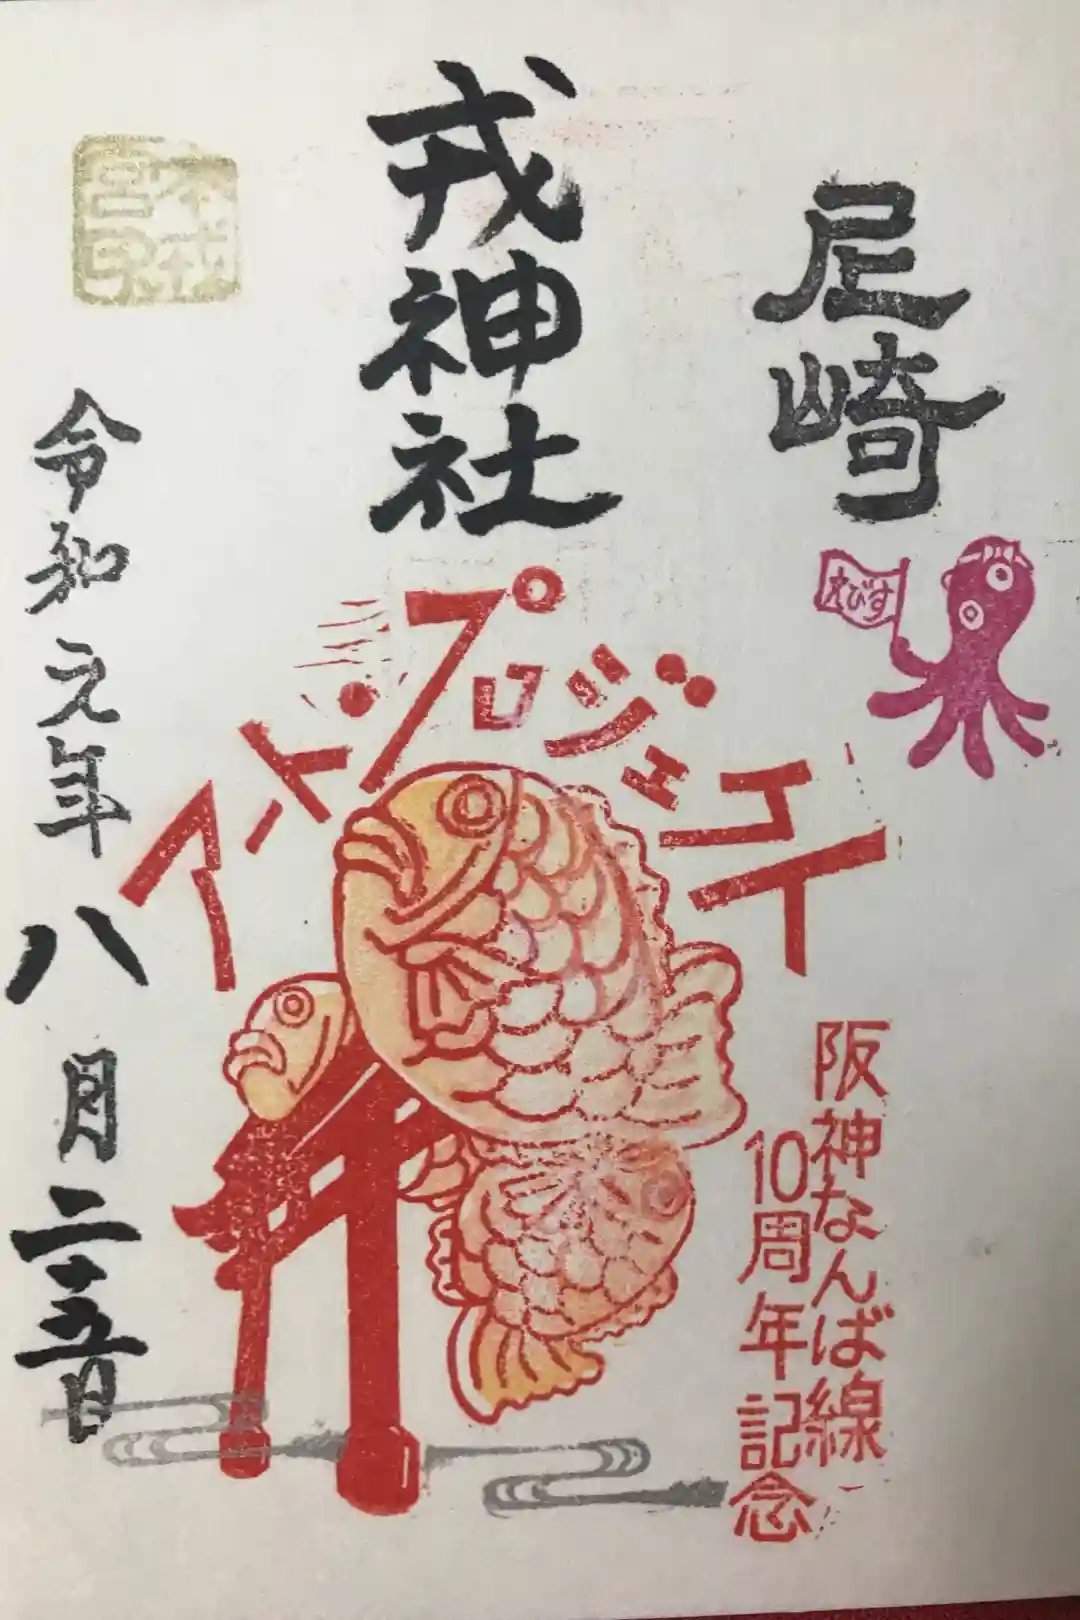 尼崎
えびす
戎神社
アートプロジェクト
阪神なんば線
10周年記念
令和元年八月二十五日